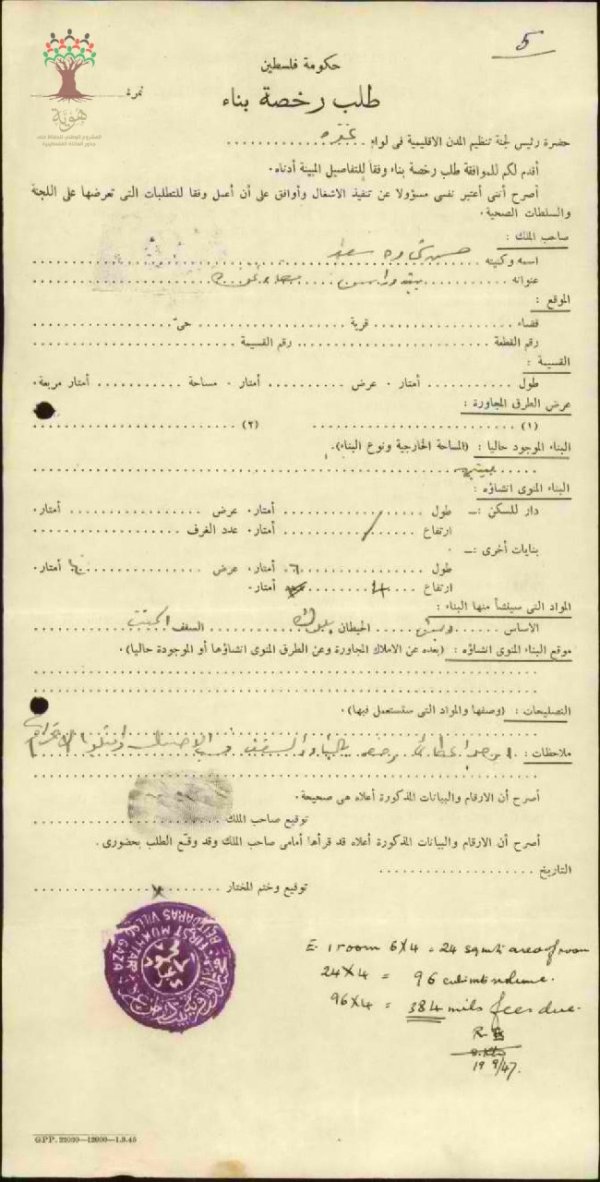 5
هوية
المشروع الوطني للحفاظ على
جذور العائلة الفلسطينية
حكومة فلسطين
طلب رخصة بناء
نمرة
حضرة رئيس لجنة تنظيم المدن الاقليمية فى لواء غزه
أقدم لكم للموافقة طلب رخصة بناء وفقا للتفاصيل المبينة أدناه.
أصرح أننى أعتبر نفسى مسؤولا عن تنفيذ الاشغال وأوافق على أن أعمل وفقا للمتطلبات التى تعرضها على اللجنة
والسلطات الصحية.
صاحب الملك :
اسمه وكنيته
عنوانه
الموقع :
قضاء قرية حىّ
رقم القطعة رقم القسيمة
القسيمة :
طول أمتار. عرض أمتار. مساحة أمتار مربعة.
عرض الطرق المجاورة :
(١) (٢)
البناء الموجود حاليا : (المساحة الخارجية ونوع البناء).
البناء المنوى انشاؤه :
دار للسكن :— طول أمتار. عرض أمتار.
ارتفاع أمتار. عدد الغرف
بنايات أخرى :—
طول ٦ أمتار. عرض ٤ أمتار.
ارتفاع ٤ أمتار.
المواد التى سينشأ منها البناء :
الأساس الحيطان السقف
موقع البناء المنوى انشاؤه : (بعده عن الاملاك المجاورة وعن الطرق المنوى انشاؤها أو الموجودة حاليا).
التصليحات : (وصفها والمواد التى ستستعمل فيها).
ملاحظات :
أصرح أن الارقام والبيانات المذكورة أعلاه هى صحيحة.
توقيع صاحب الملك
أصرح أن الارقام والبيانات المذكورة أعلاه قد قرأها أمامى صاحب الملك وقد وقع الطلب بحضورى.
التاريخ
توقيع وختم المختار
FIRST MUKHTAR
BEIT DARAS VILLAGE GAZA
E. 1 room 6X4 = 24 sq mts area of room
24X4 = 96 cub mts volume.
96X4 = 384 mils fees due.
19/9/47.
G.P.P. 22030—12000—1.9.45